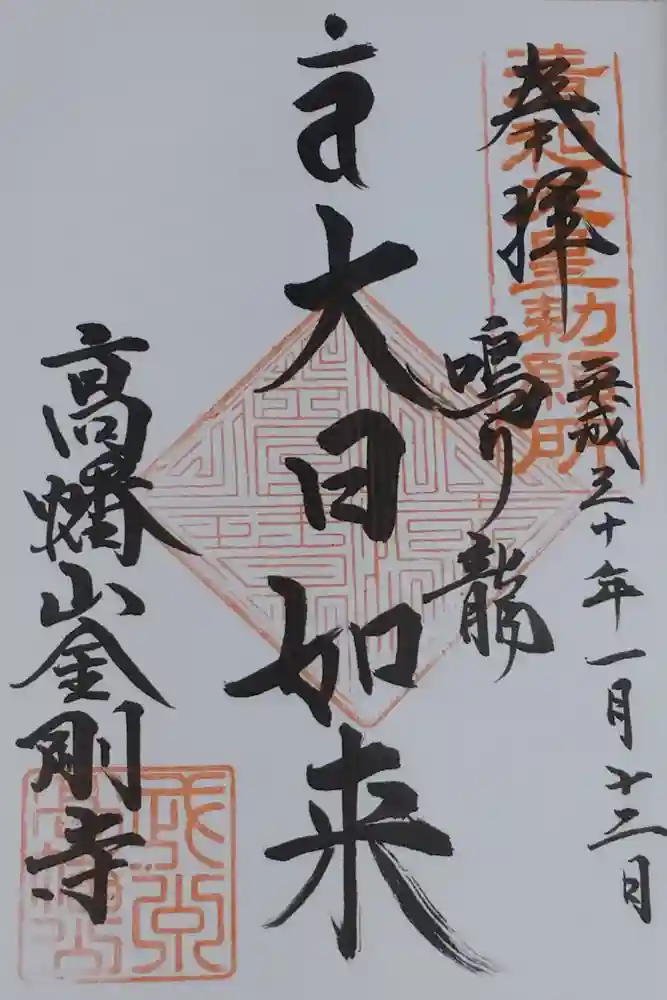 奉拝
清和天皇勅願所
平成三十年一月十二日
鳴り龍
大日如来
高幡山金剛寺